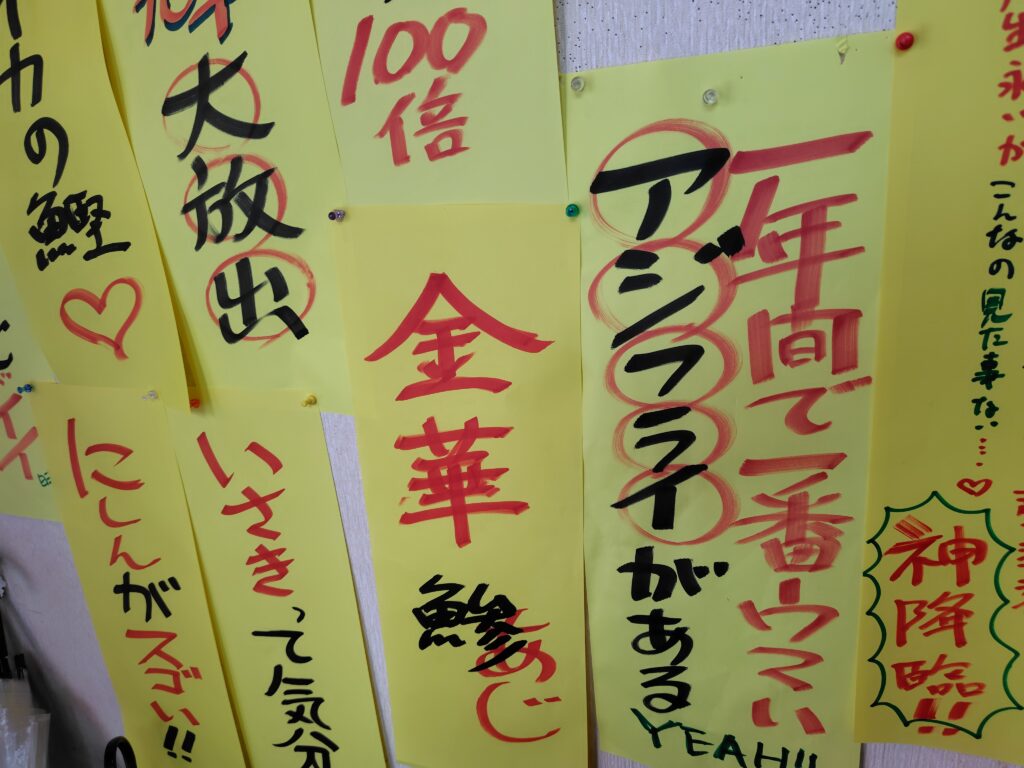 生永いが
こんなの見た事ない…♡
神降臨!!
一年間で一番ウマい
アジフライがある
YEAH!!
100倍
金華
鯵
あじ
大放出
いさきって気分
イカの鰹♡
にしんがスゴい!!